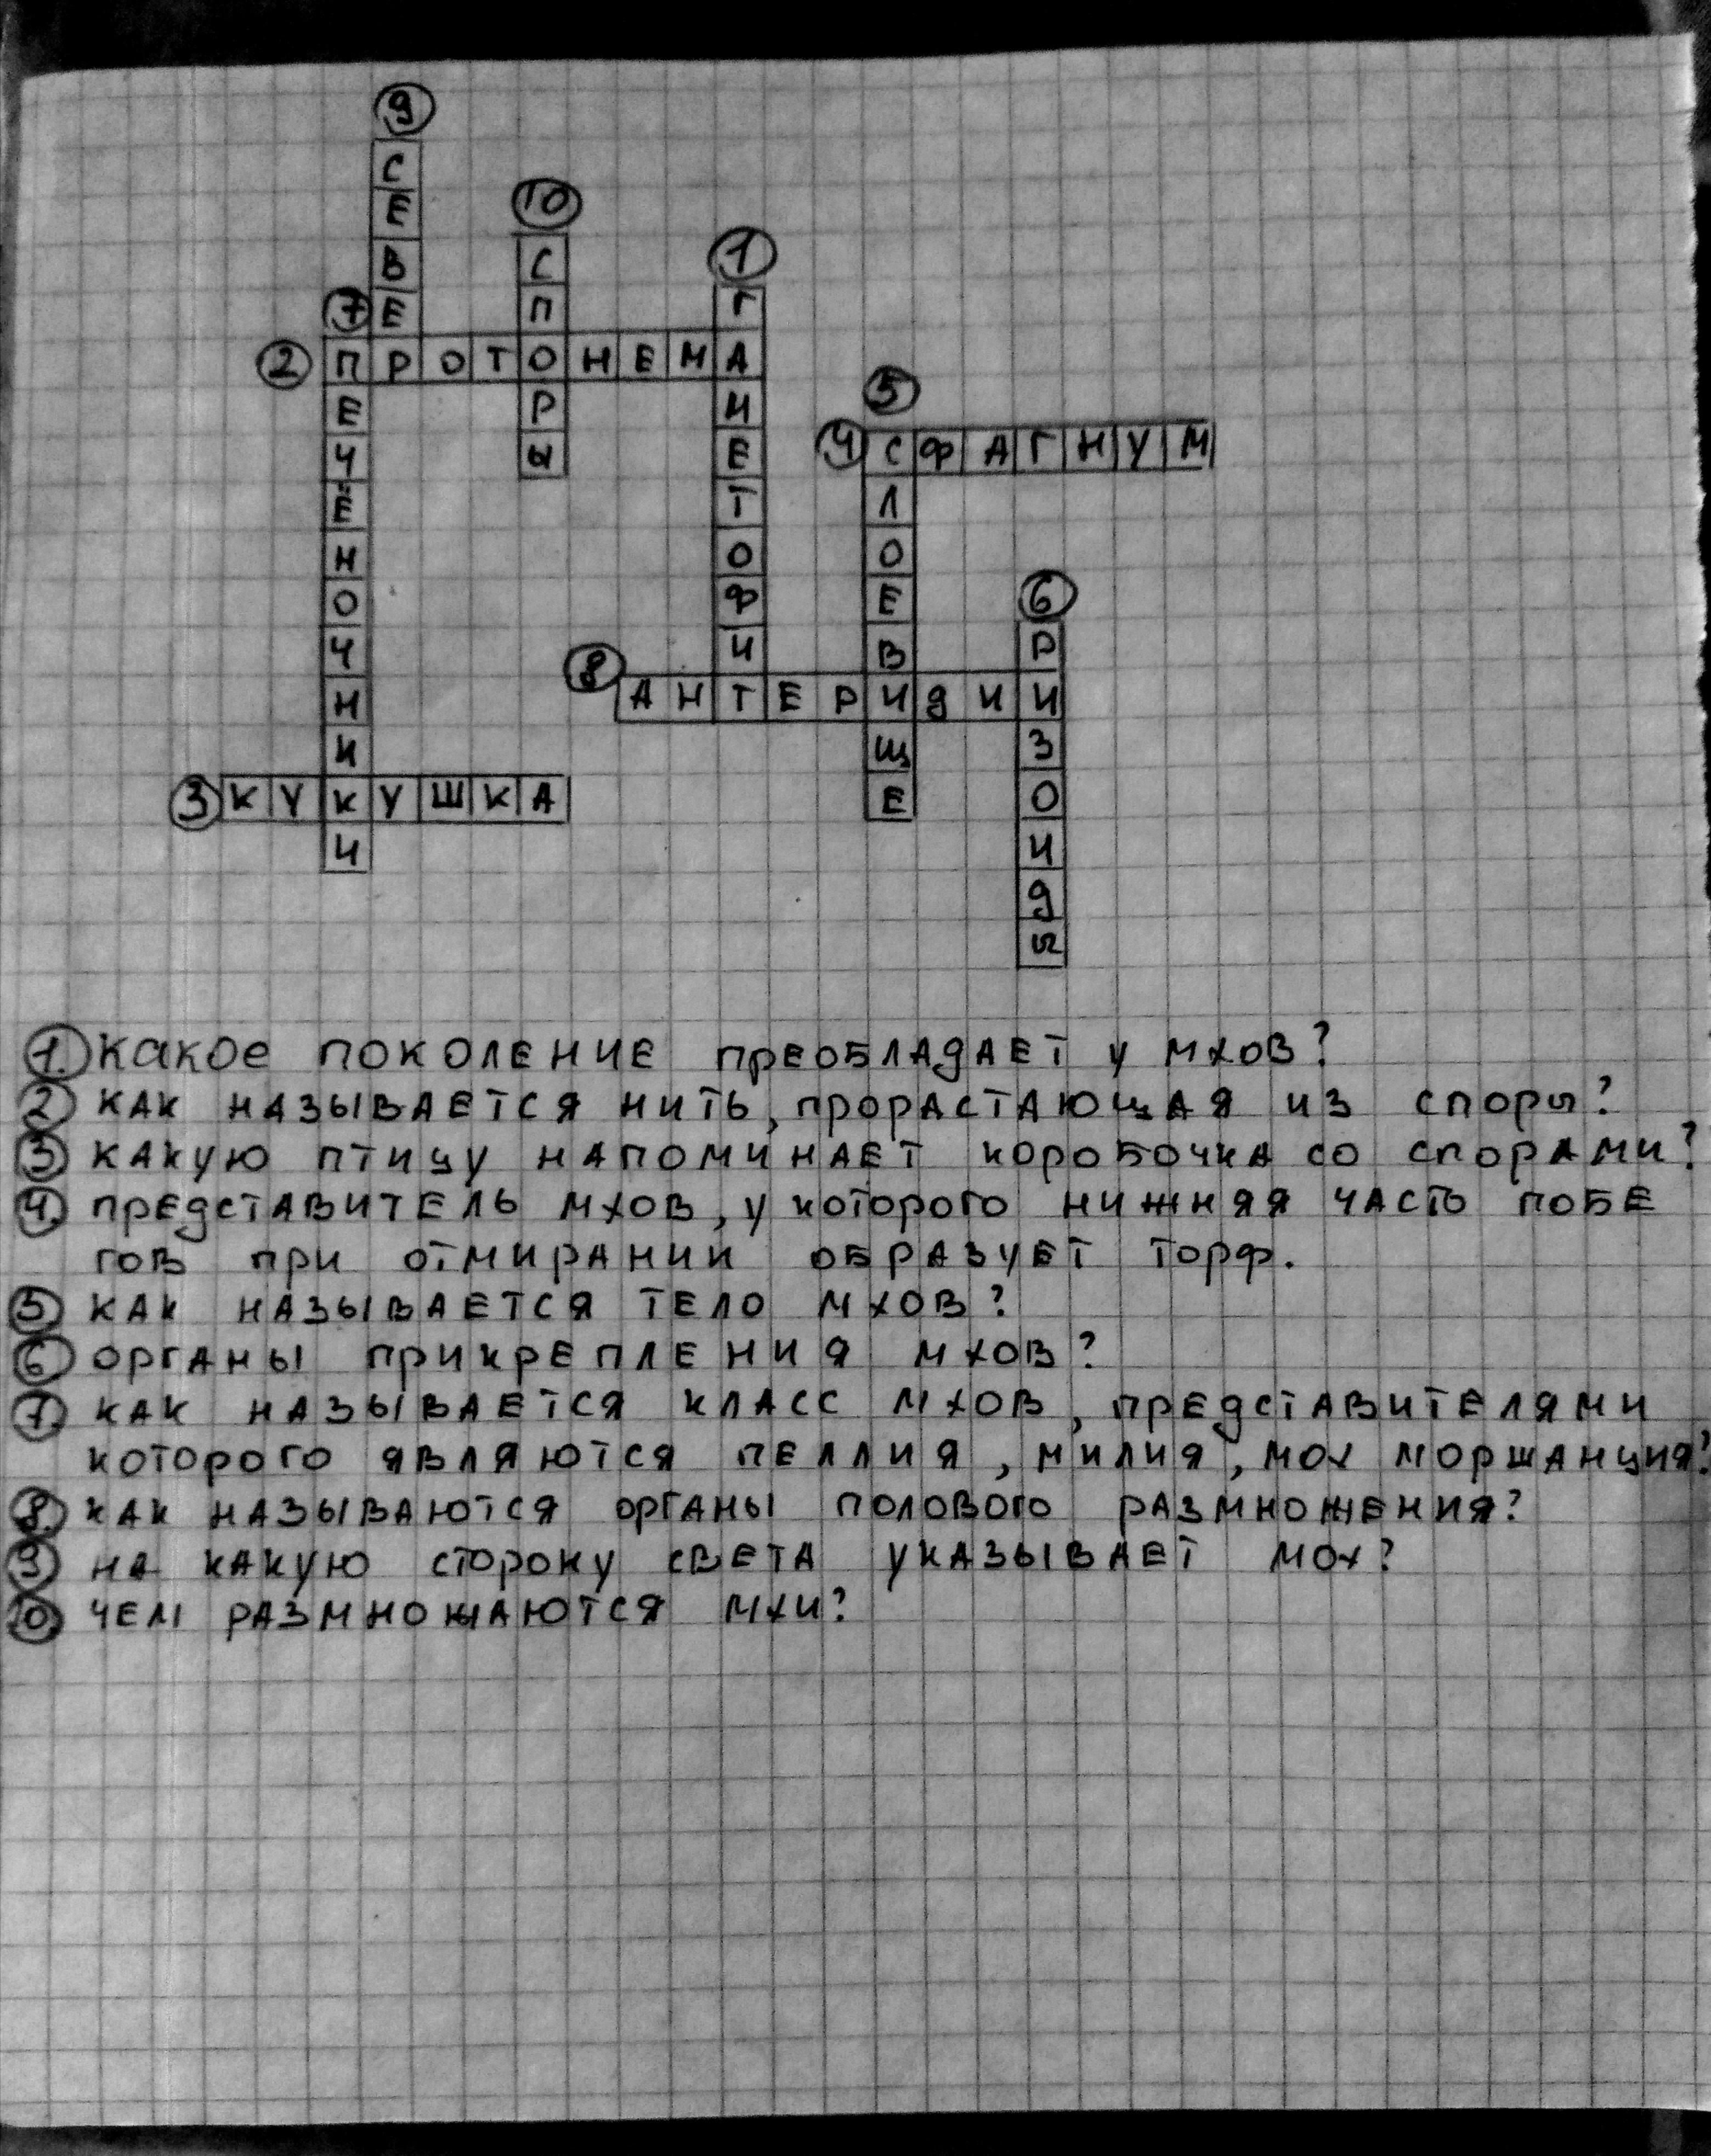 9
СЕВЕР
10
СПОРЫ
1
ГАМЕТОФИТ
7
ПЕЧЁНОЧНИКИ
2 ПРОТОНЕМА
5
СЛОЕВИЩЕ
4 СФАГНУМ
6
РИЗОИДЫ
8 АНТЕРИДИИ
3 КУКУШКА
1. КАКОЕ ПОКОЛЕНИЕ ПРЕОБЛАДАЕТ У МХОВ?
2 КАК НАЗЫВАЕТСЯ НИТЬ, ПРОРАСТАЮЩАЯ ИЗ СПОРЫ?
3 КАКУЮ ПТИЦУ НАПОМИНАЕТ КОРОБОЧКА СО СПОРАМИ?
4. ПРЕДСТАВИТЕЛЬ МХОВ, У КОТОРОГО НИЖНЯЯ ЧАСТЬ ПОБЕ
ГОВ ПРИ ОТМИРАНИИ ОБРАЗУЕТ ТОРФ.
5 КАК НАЗЫВАЕТСЯ ТЕЛО МХОВ?
6 ОРГАНЫ ПРИКРЕПЛЕНИЯ МХОВ?
7. КАК НАЗЫВАЕТСЯ КЛАСС МХОВ, ПРЕДСТАВИТЕЛЯМИ
КОТОРОГО ЯВЛЯЮТСЯ ПЕЛЛИЯ, МИЛИЯ, МОХ МОРШАНЦИЯ?
8. КАК НАЗЫВАЮТСЯ ОРГАНЫ ПОЛОВОГО РАЗМНОЖЕНИЯ?
9 НА КАКУЮ СТОРОНУ СВЕТА УКАЗЫВАЕТ МОХ?
10. ЧЕМ РАЗМНОЖАЮТСЯ МХИ?